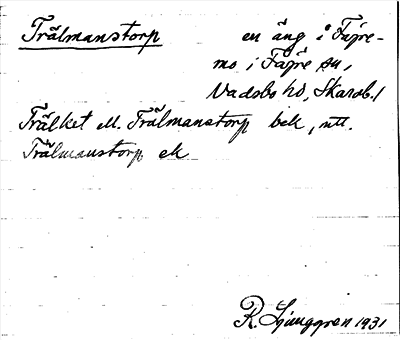 Trälmanstorp en äng i Fägre-
mo i Fägre sn,
Vadsbo hd, Skarab.l
Trälket ell. Trälmanstorp bek, utt.
Trälmanstorp ek
R. Ljunggren 1931